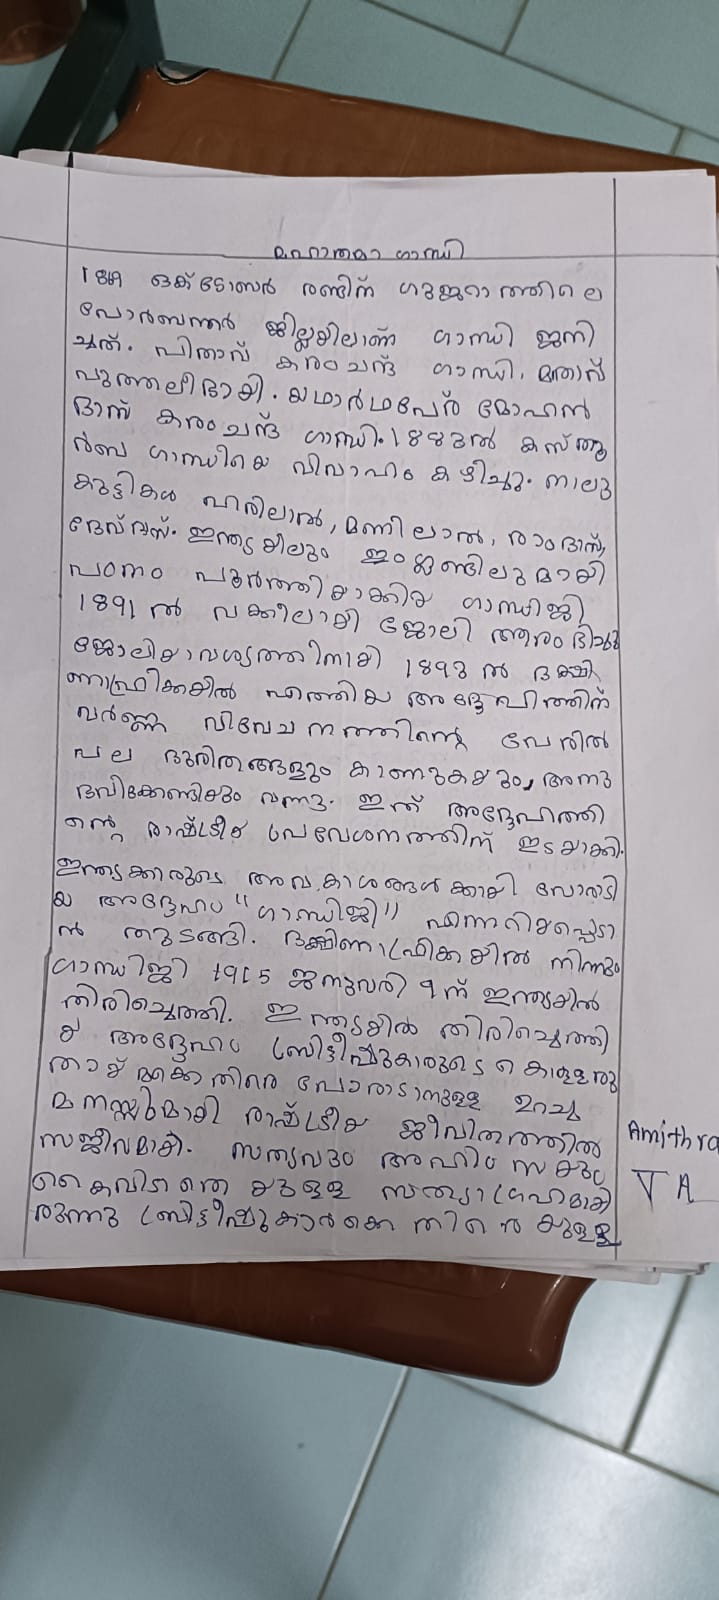 മഹാത്മാ ഗാന്ധി
1869 ഒക്ടോബർ രണ്ടിന് ഗുജറാത്തിലെ
പോർബന്തർ ജില്ലയിലാണ് ഗാന്ധി ജനി
ച്ചത്. പിതാവ് കരംചന്ദ് ഗാന്ധി, മതാവ്
പുത്തലീഭായി. യഥാർഥപേര് മോഹൻ
ദാസ് കരംചന്ദ് ഗാന്ധി. 1883ൽ കസ്തൂ
ർബ ഗാന്ധിയെ വിവാഹം കഴിച്ചു. നാലു
കുട്ടികൾ ഹരിലാൽ, മണിലാൽ, രാംദാസ്,
ദേവ്ദാസ്. ഇന്ത്യയിലും ഇംഗ്ലണ്ടിലുമായി
പഠനം പൂർത്തിയാക്കിയ ഗാന്ധിജി
1891 ൽ വക്കീലായി ജോലി ആരംഭിച്ചു
ജോലിയാവശ്യത്തിനായി 1893 ൽ ദക്ഷി
ണാഫ്രിക്കയിൽ എത്തിയ അദ്ദേഹത്തിന്
വർണ്ണ വിവേചനത്തിന്റെ പേരിൽ
പല ദുരിതങ്ങളും കാണുകയും, അനു
ഭവിക്കേണ്ടിയും വന്നു. ഇത് അദ്ദേഹത്തി
ന്റെ രാഷ്ട്രീയ പ്രവേശനത്തിന് ഇടയാക്കി.
ഇന്ത്യക്കാരുടെ അവകാശങ്ങൾക്കായി പോരാടി
യ അദ്ദേഹം "ഗാന്ധിജി" എന്നറിയപ്പെടാ
ൻ തുടങ്ങി. ദക്ഷിണാഫ്രിക്കയിൽ നിന്നും
ഗാന്ധിജി 1915 ജനുവരി 9ന് ഇന്ത്യയിൽ
തിരിച്ചെത്തി. ഇന്ത്യയിൽ തിരിച്ചെത്തി
യ അദ്ദേഹം ബ്രിട്ടീഷുകാരുടെ കൊള്ളരു
തായ്മക്കെതിരെ പോരാടാനുള്ള ഉറച്ച
മനസ്സുമായി രാഷ്ട്രീയ ജീവിതത്തിൽ
സജീവമായി. സത്യവും അഹിംസയും
കൈവിടാതെയുള്ള സത്യാഗ്രഹമായി
രുന്നു ബ്രിട്ടീഷുകാർക്കെതിരെയുള്ള
Amithra
T A